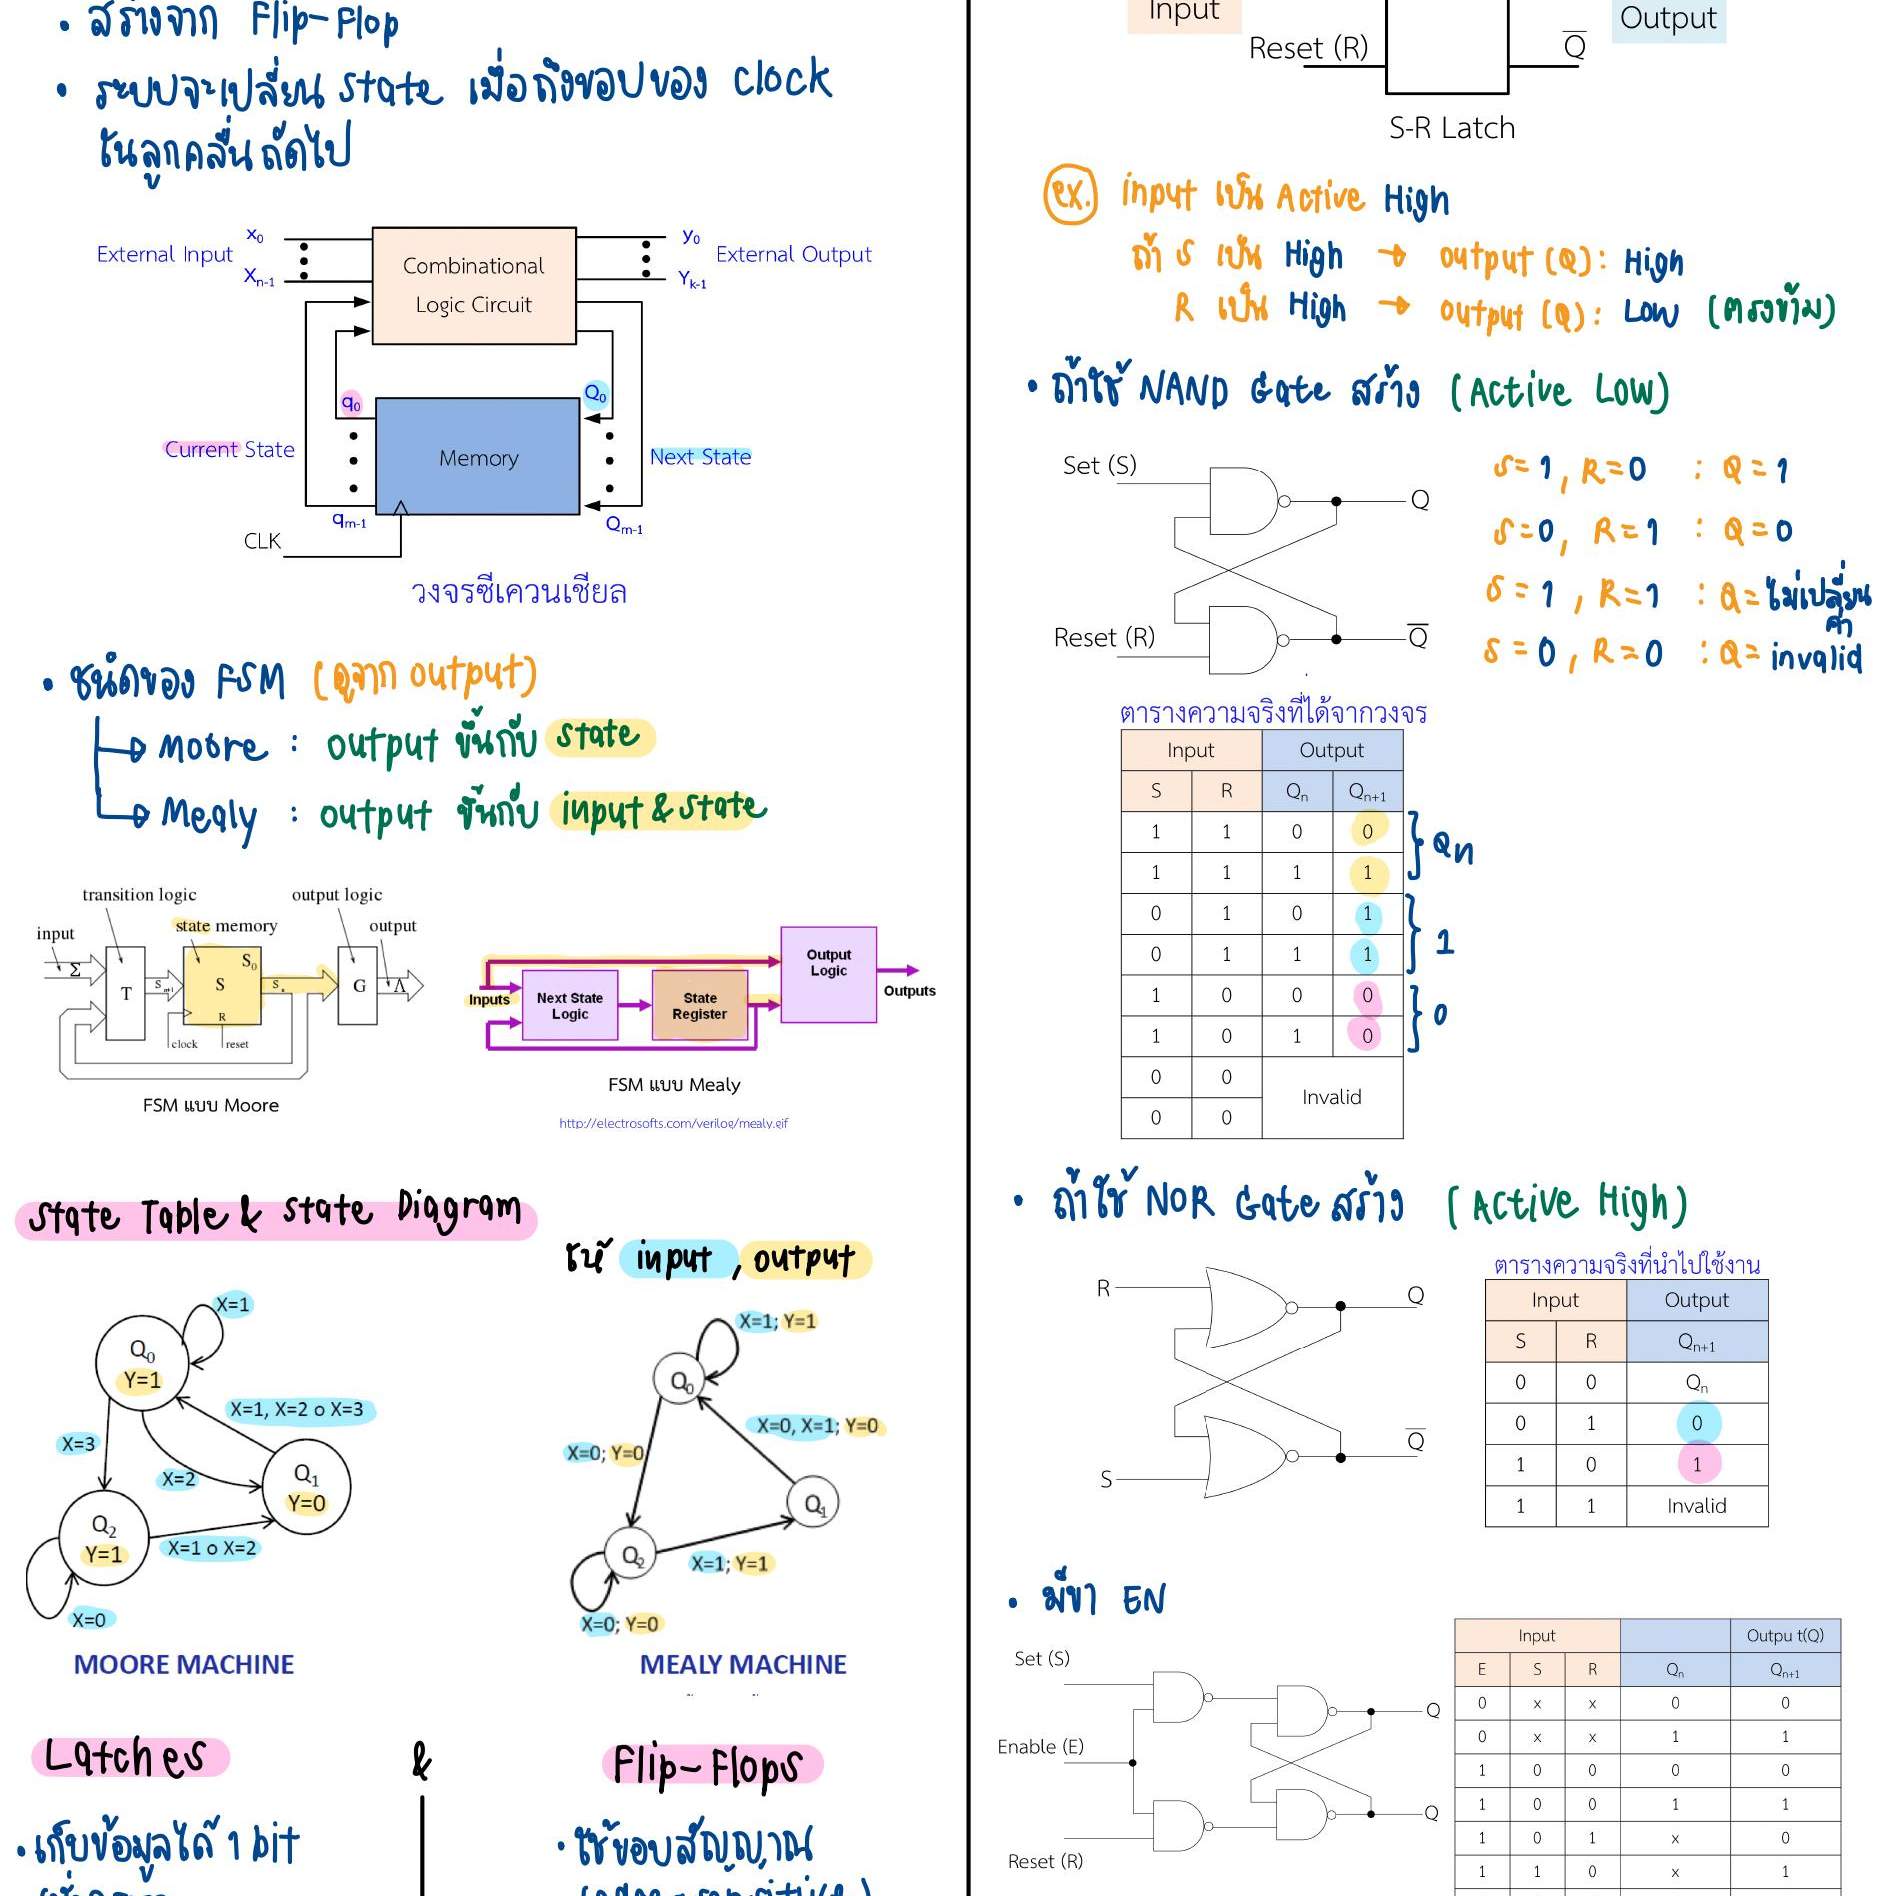 • สร้างจาก Flip-Flop
• ระบบจะเปลี่ยน state เมื่อถึงขอบของ clock
ในลูกคลื่นถัดไป
External Input
x0
Xn-1
Combinational
Logic Circuit
y0
Yk-1
External Output
q0
Q0
Current State
Memory
Next State
qm-1
Qm-1
CLK
วงจรซีเควนเชียล
• ชนิดของ FSM (ดูจาก output)
Moore : output ขึ้นกับ state
Mealy : output ขึ้นกับ input & state
transition logic
output logic
input
state memory
output
Σ
T
Sn+1
S
S0
R
G
Λ
clock
reset
FSM แบบ Moore
Inputs
Next State
Logic
State
Register
Output
Logic
Outputs
FSM แบบ Mealy
http://electrosofts.com/verilog/mealy.gif
State Table & State Diagram
input, output
X=1
Q0
Y=1
X=1, X=2 o X=3
X=3
X=2
Q1
Y=0
Q2
Y=1
X=1 o X=2
X=0
MOORE MACHINE
X=1; Y=1
Q0
X=0, X=1; Y=0
X=0; Y=0
Q1
Q2
X=1; Y=1
X=0; Y=0
MEALY MACHINE
Latches & Flip-Flops
• เก็บข้อมูลได้ 1 bit
• ใช้ขอบสัญญาณ
Input
Output
Reset (R)
Q̅
S-R Latch
ex. input เป็น Active High
ถ้า S เป็น High → output (Q): High
R เป็น High → output (Q): Low (ตรงข้าม)
• ถ้าใช้ NAND Gate สร้าง (Active Low)
Set (S)
Q
Reset (R)
Q̅
S=1, R=0 : Q=1
S=0, R=1 : Q=0
S=1, R=1 : Q=ไม่เปลี่ยน
ค่า
S=0, R=0 : Q=invalid
ตารางความจริงที่ได้จากวงจร
Input Output
S R Qn Qn+1
1 1 0 0
1 1 1 1
Qn
0 1 0 1
0 1 1 1
1
1 0 0 0
1 0 1 0
0
0 0
Invalid
0 0
• ถ้าใช้ NOR Gate สร้าง (Active High)
R
Q
Q̅
S
ตารางความจริงที่นำไปใช้งาน
Input Output
S R Qn+1
0 0 Qn
0 1 0
1 0 1
1 1 Invalid
• มีขา EN
Set (S)
Q
Enable (E)
Q̅
Reset (R)
Input Outpu t(Q)
E S R Qn Qn+1
0 x x 0 0
0 x x 1 1
1 0 0 0 0
1 0 0 1 1
1 0 1 x 0
1 1 0 x 1